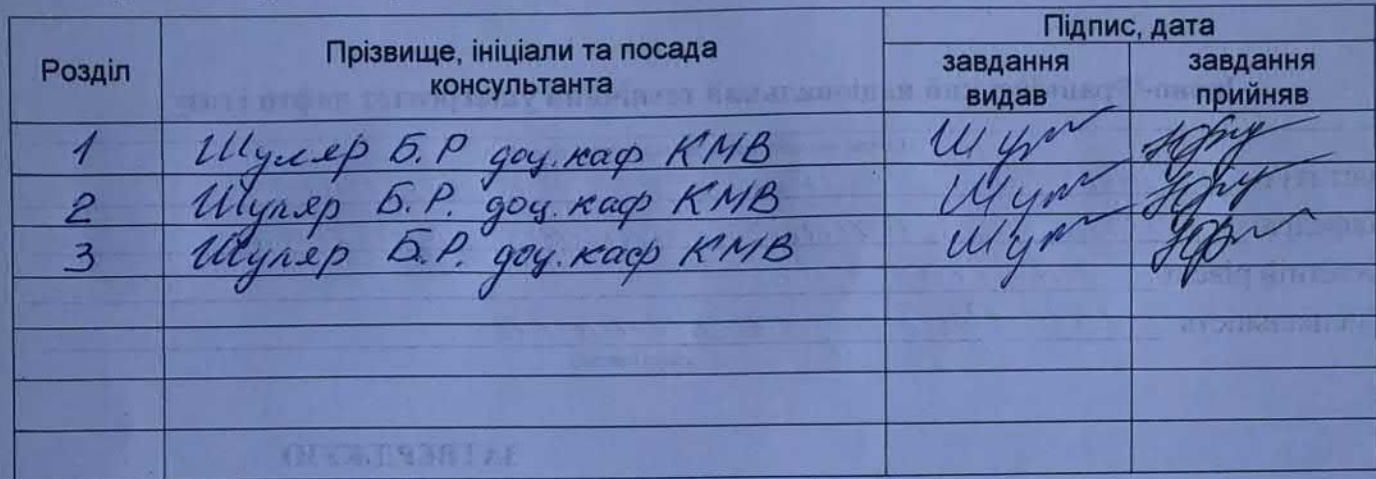 Підпис, дата
Розділ
Прізвище, ініціали та посада
консультанта
завдання
видав
завдання
прийняв
1 Шуляр Б.Р доц. каф КМВ Шул
2 Шуляр Б.Р. доц. каф КМВ Шул
3 Шуляр Б.Р. доц. каф КМВ Шул